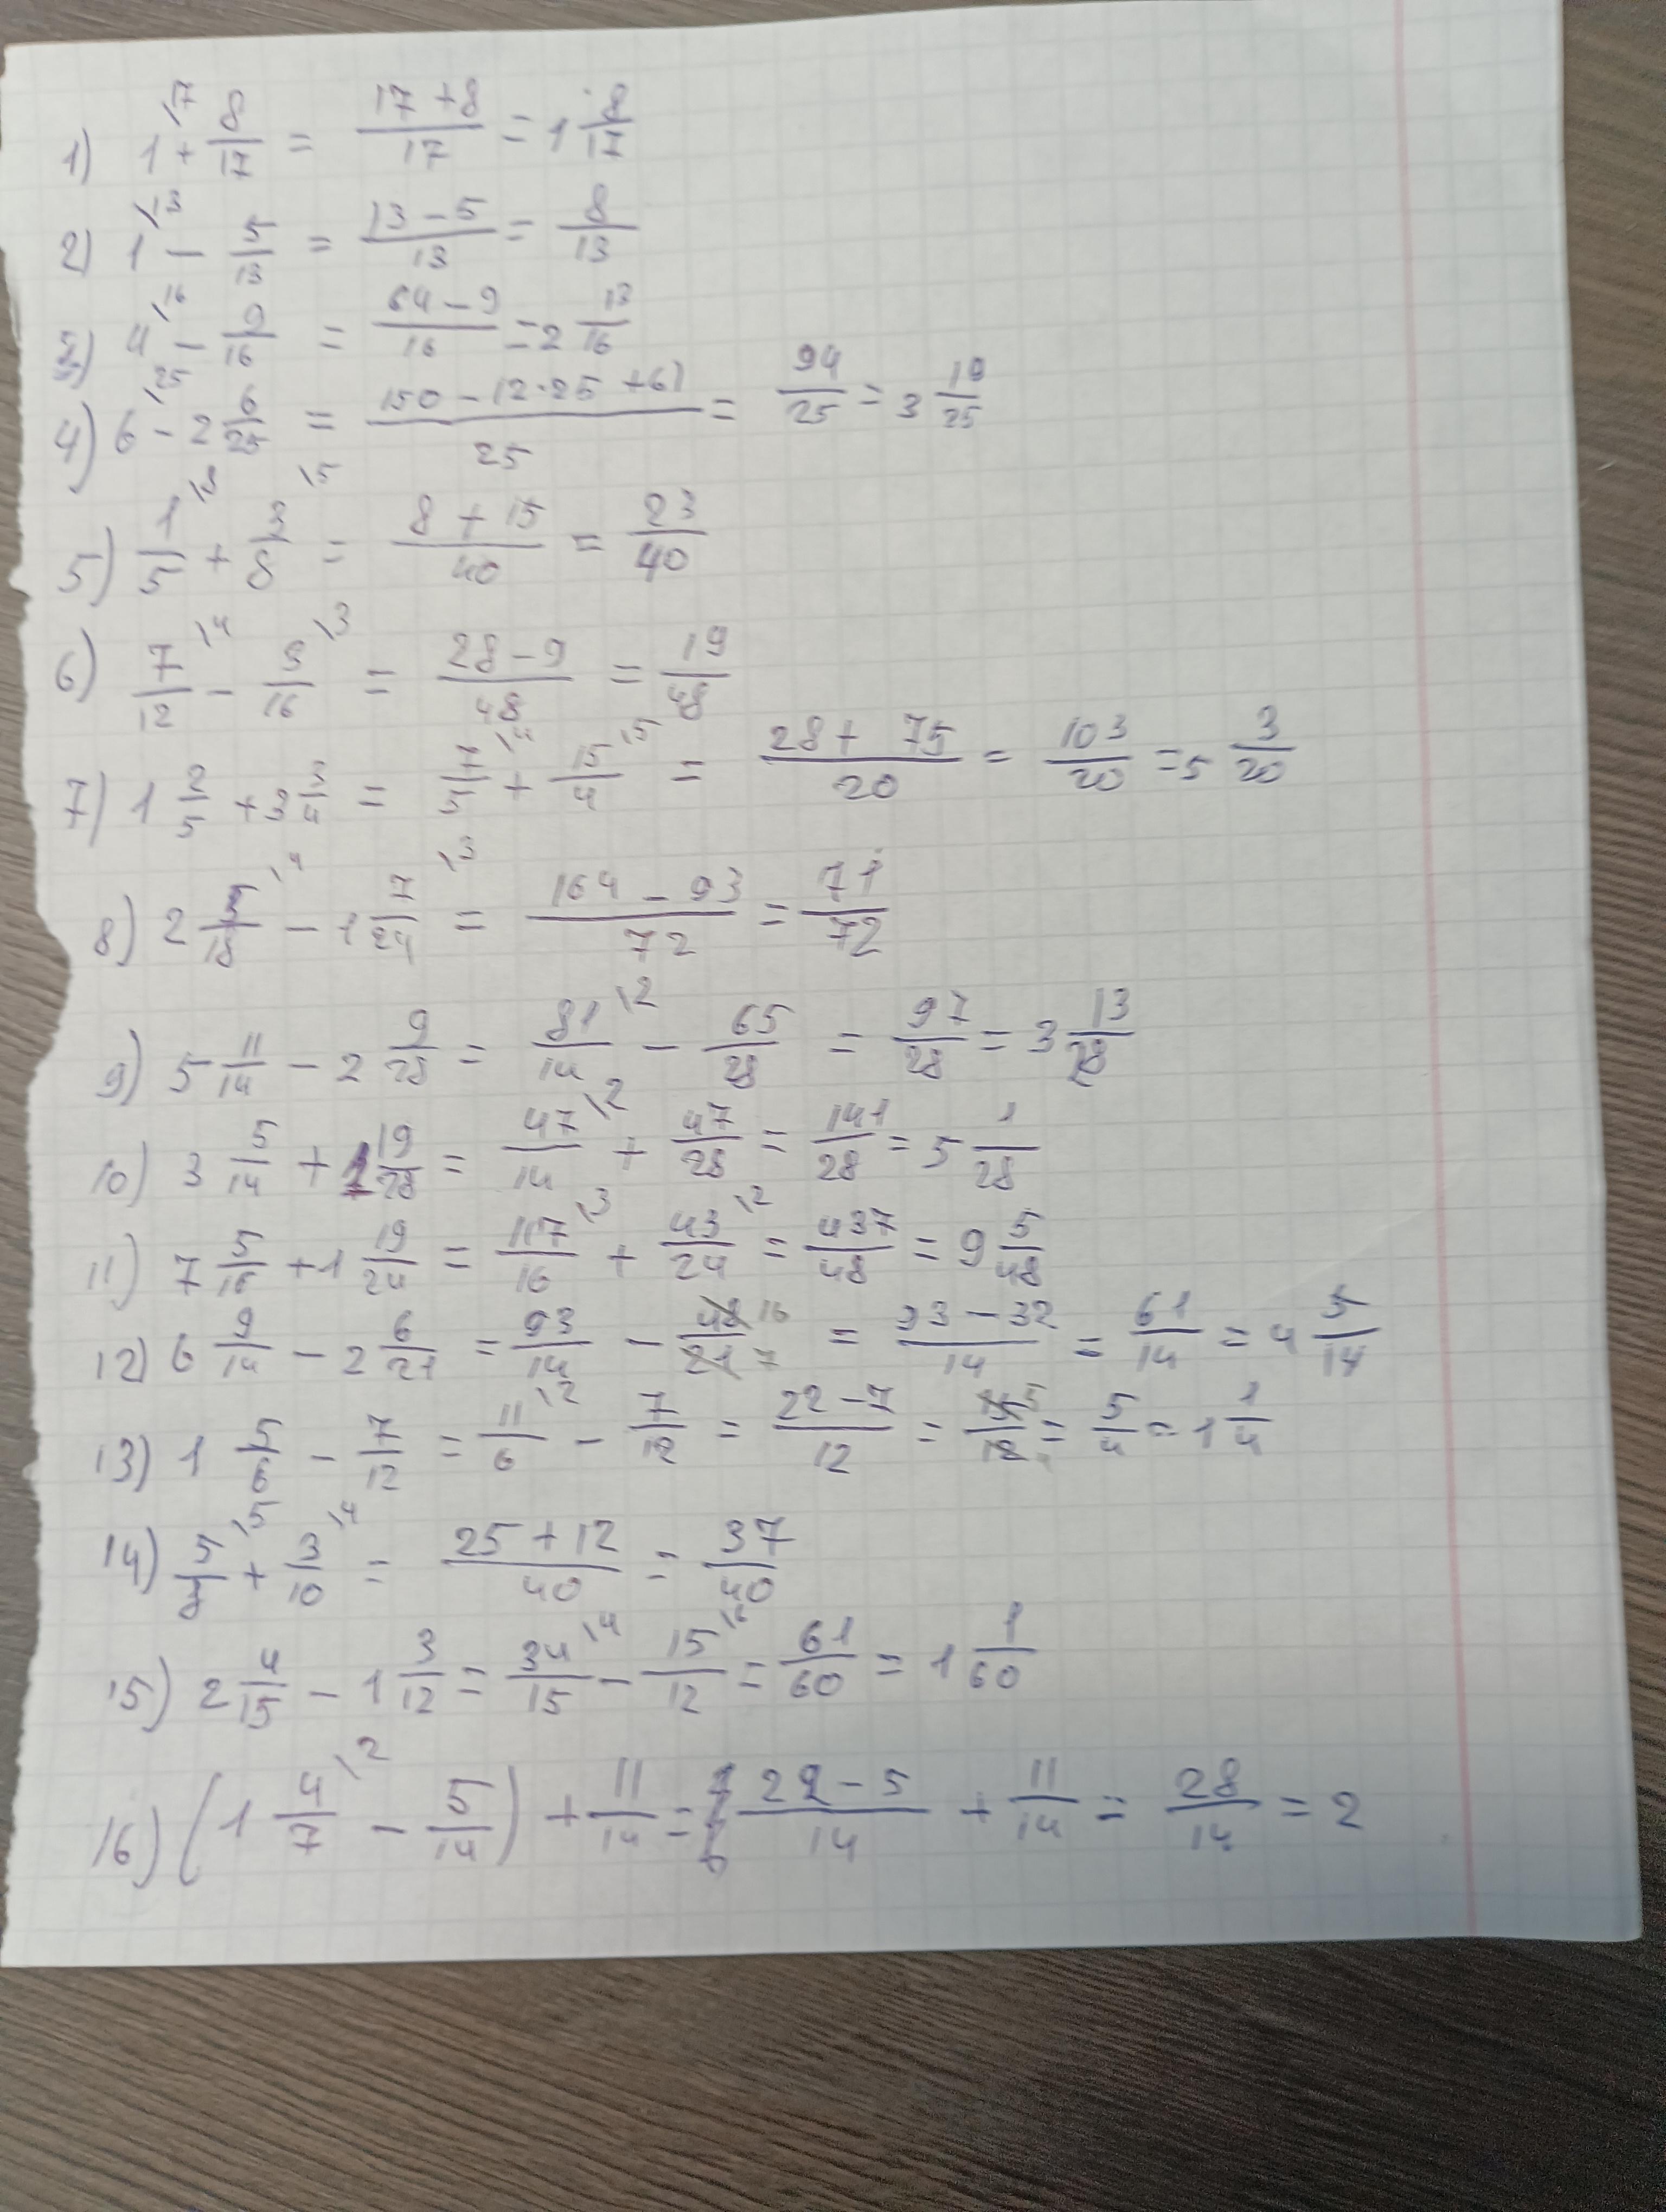 1) 1\17 + 8/17 = (17 + 8)/17 = 1 8/17
2) 1\13 - 5/13 = (13 - 5)/13 = 8/13
3) 4\16 - 9/16 = (64 - 9)/16 = 2 13/16
4) 6\25 - 2 6/25 = (150 - (2·25 + 6))/25 = 94/25 = 3 19/25
5) 1/5\8 + 3/8\5 = (8 + 15)/40 = 23/40
6) 7/12\4 - 3/16\3 = (28 - 9)/48 = 19/48
7) 1 2/5 + 3 3/4 = 7/5\4 + 15/4\5 = (28 + 75)/20 = 103/20 = 5 3/20
8) 2 5/18\4 - 1 7/24\3 = (164 - 93)/72 = 71/72
9) 5 11/14 - 2 9/28 = 81/14\2 - 65/28 = 97/28 = 3 13/28
10) 3 5/14 + 1 19/28 = 47/14\2 + 47/28 = 141/28 = 5 1/28
11) 7 5/16 + 1 19/24 = 117/16\3 + 43/24\2 = 437/48 = 9 5/48
12) 6 9/14 - 2 6/21 = 93/14 - 48/21 16/7 = (93 - 32)/14 = 61/14 = 4 5/14
13) 1 5/6 - 7/12 = 11/6\2 - 7/12 = (22 - 7)/12 = 15/12 5/4 = 5/4 = 1 1/4
14) 5/8\5 + 3/10\4 = (25 + 12)/40 = 37/40
15) 2 4/15 - 1 3/12 = 34/15\4 - 15/12 = 61/60 = 1 1/60
16) (1 4/7\2 - 5/14) + 11/14 = (22 - 5)/14 + 11/14 = 28/14 = 2